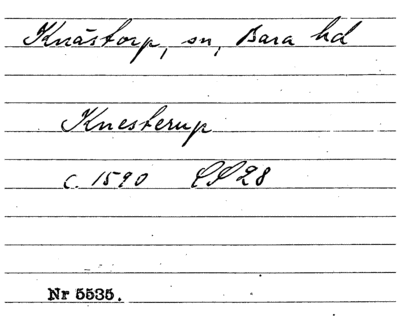 Knästorp, sn, Bara hd
Knesterup
c. 1590 CP 28
Nr 5535.